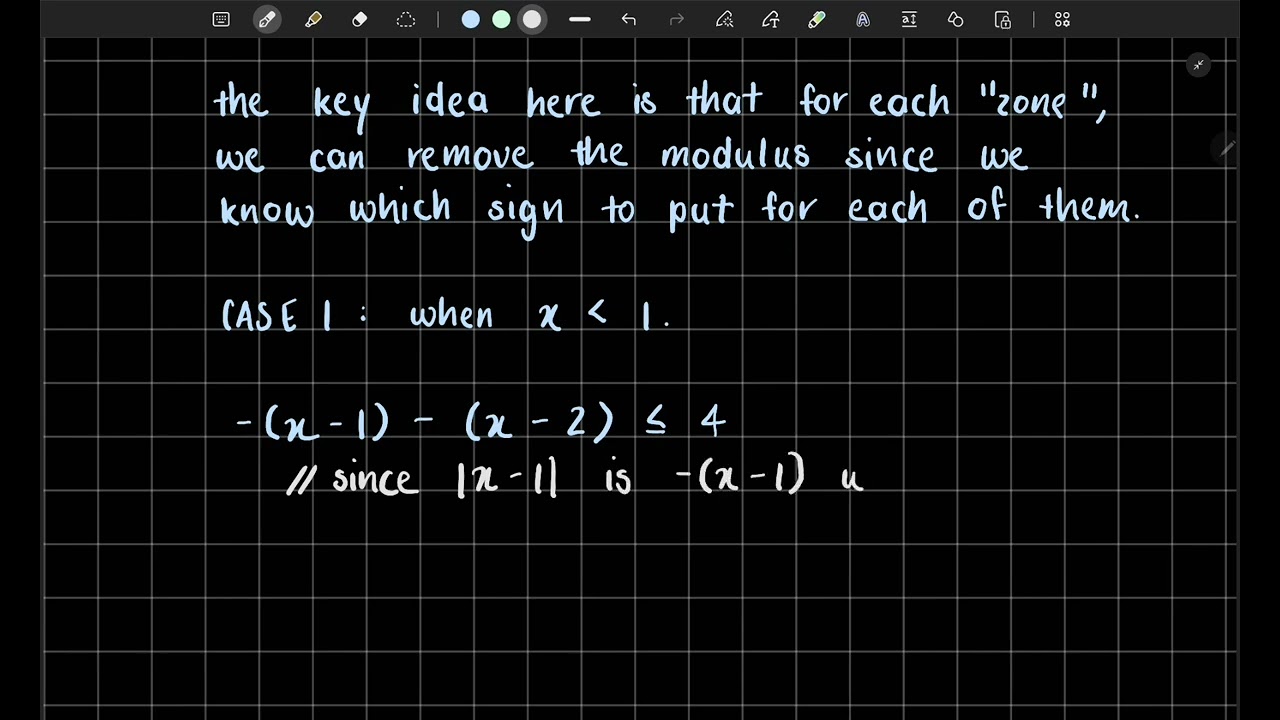 the key idea here is that for each "zone",
we can remove the modulus since we
know which sign to put for each of them.
CASE 1 : when x < 1.
-(x-1) - (x-2) ≤ 4
// since |x-1| is -(x-1) u